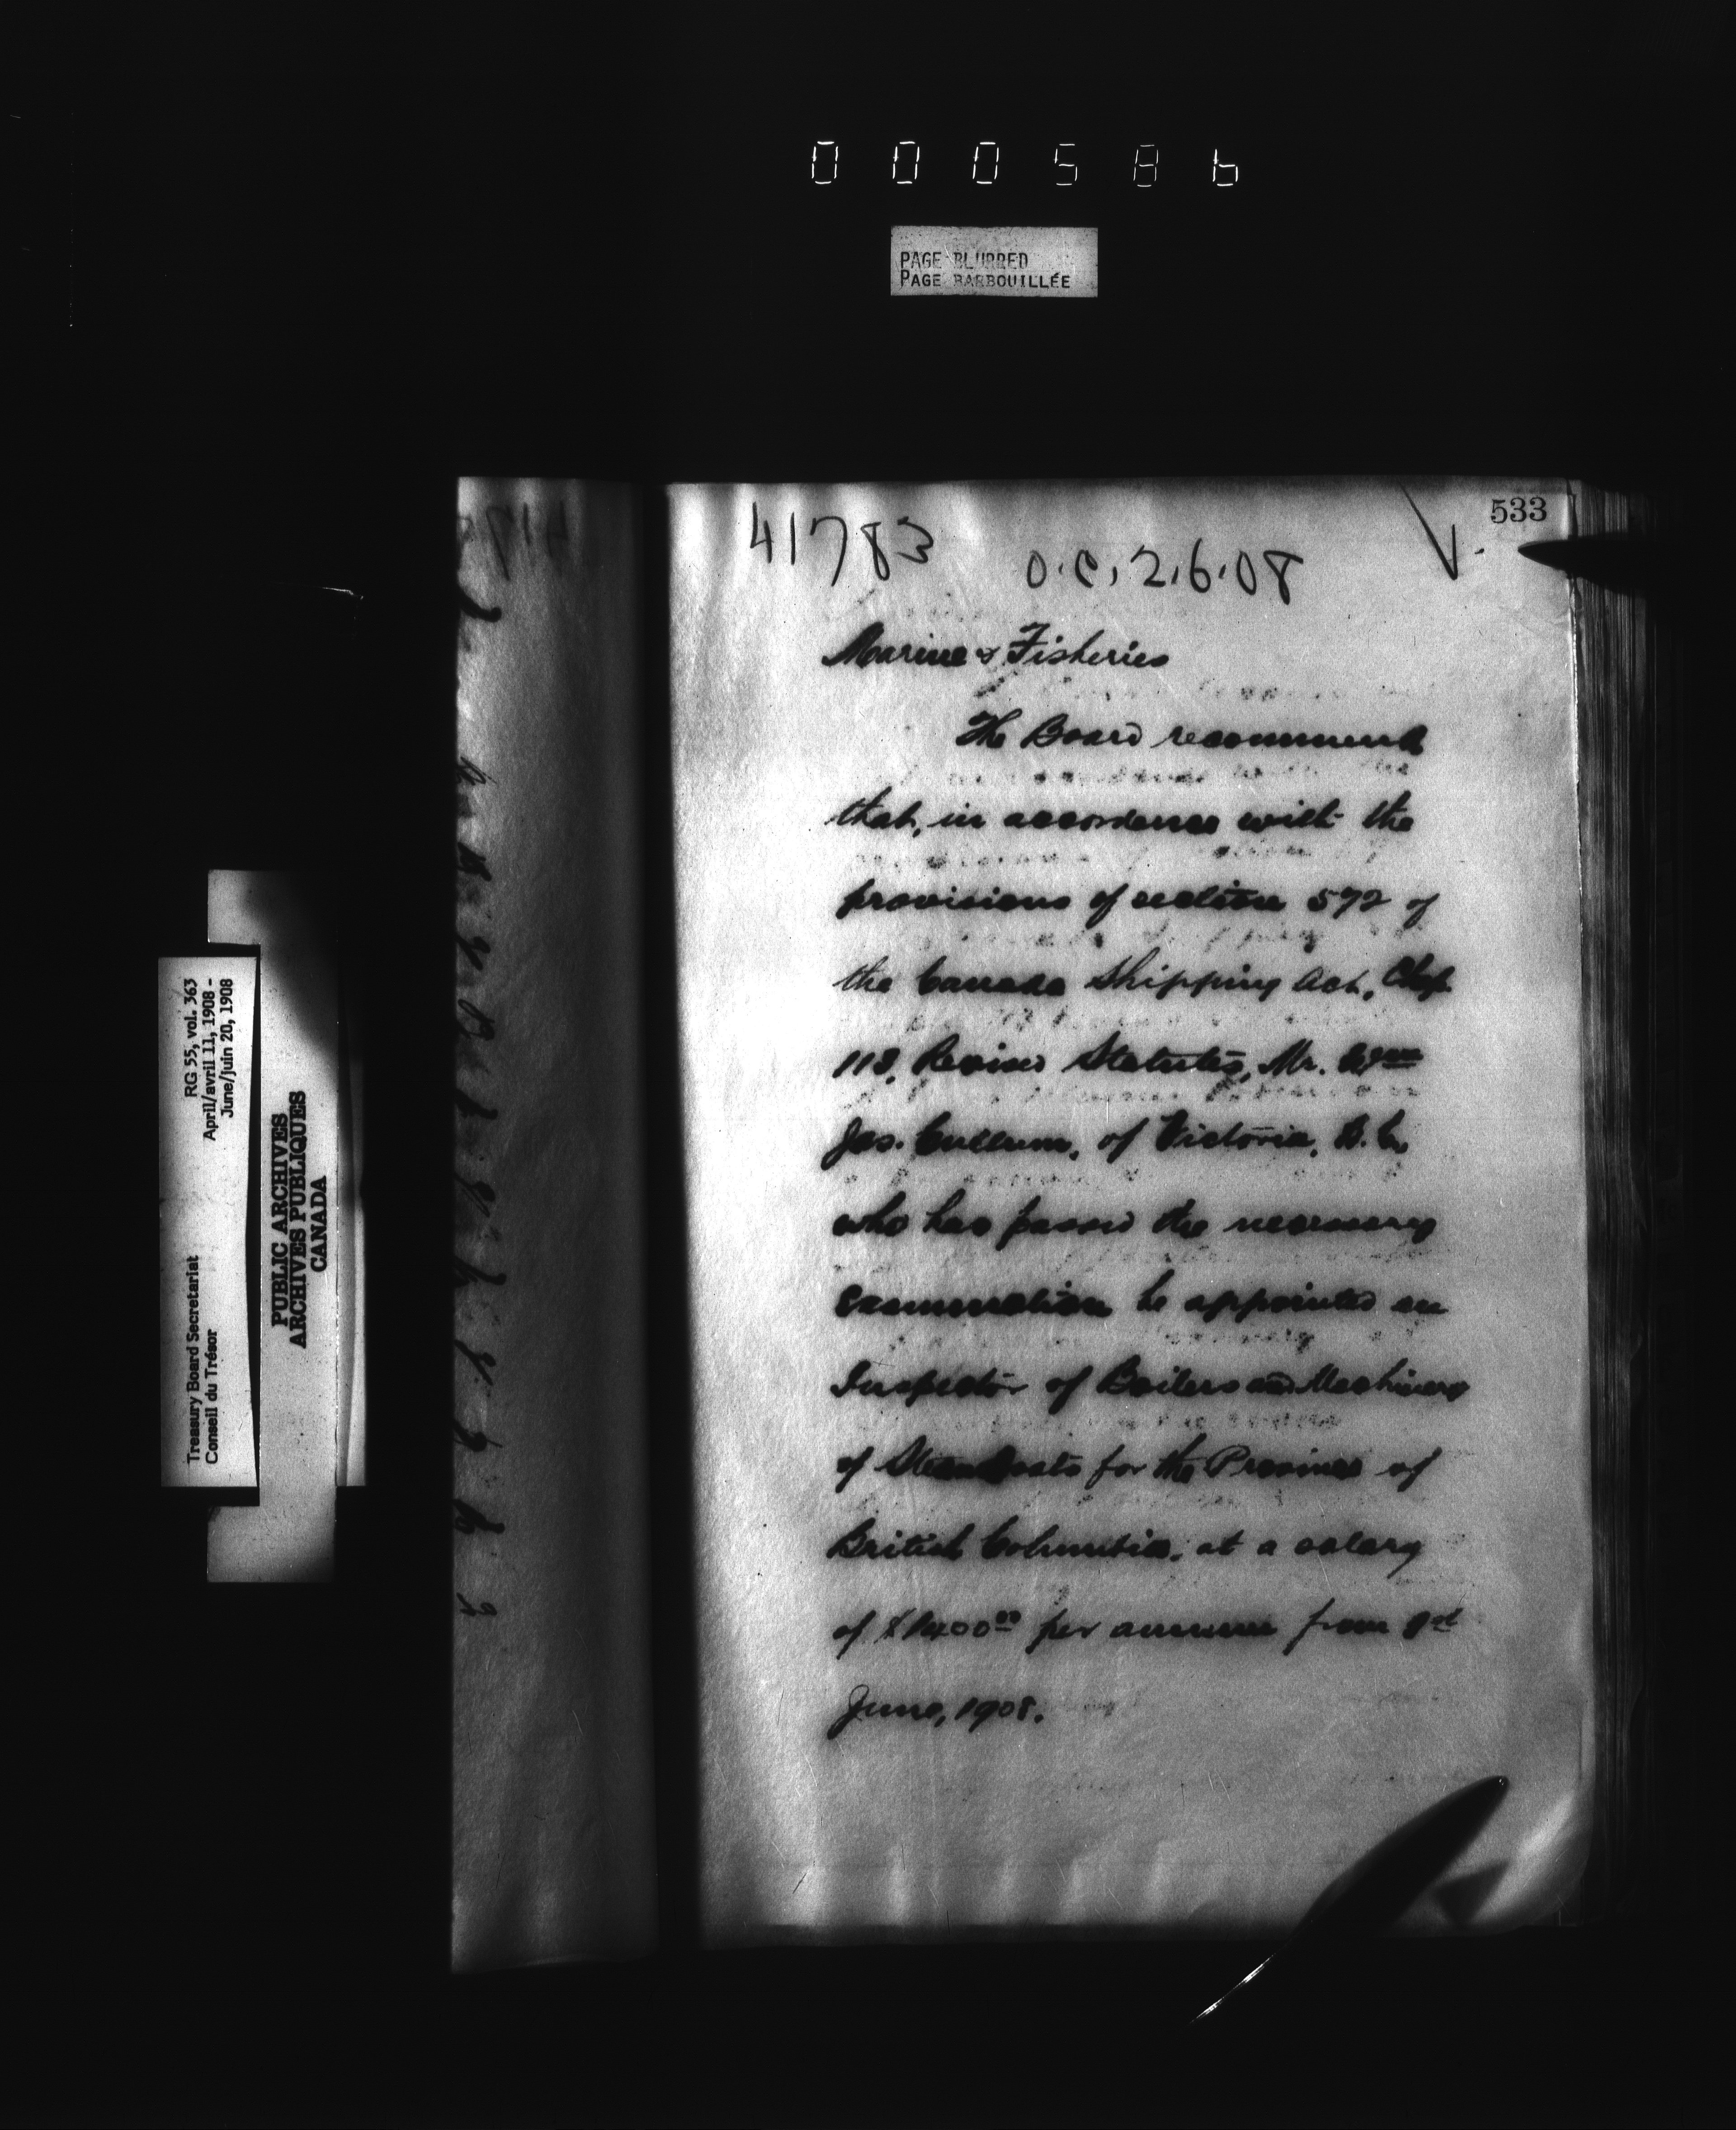 000586
PAGE BLURRED
PAGE BARBOUILLÉE
533
41783
O.C. 2.6.08
Marine & Fisheries
The Board recommend
that, in accordance with the
provisions of section 572 of
the Canada Shipping Act, Chap.
113, Revised Statutes, Mr. Wm
Jas. Cullum, of Victoria, B.C.
who has passed the necessary
examination be appointed an
Inspector of Boilers and Machinery
of Steamboats for the Province of
British Columbia, at a salary
of $1400.00 per annum from 1st
June, 1908.
RG 55, vol. 363
April/avril 11, 1908 -
June/juin 20, 1908
Treasury Board Secretariat
Conseil du Trésor
PUBLIC ARCHIVES
ARCHIVES PUBLIQUES
CANADA